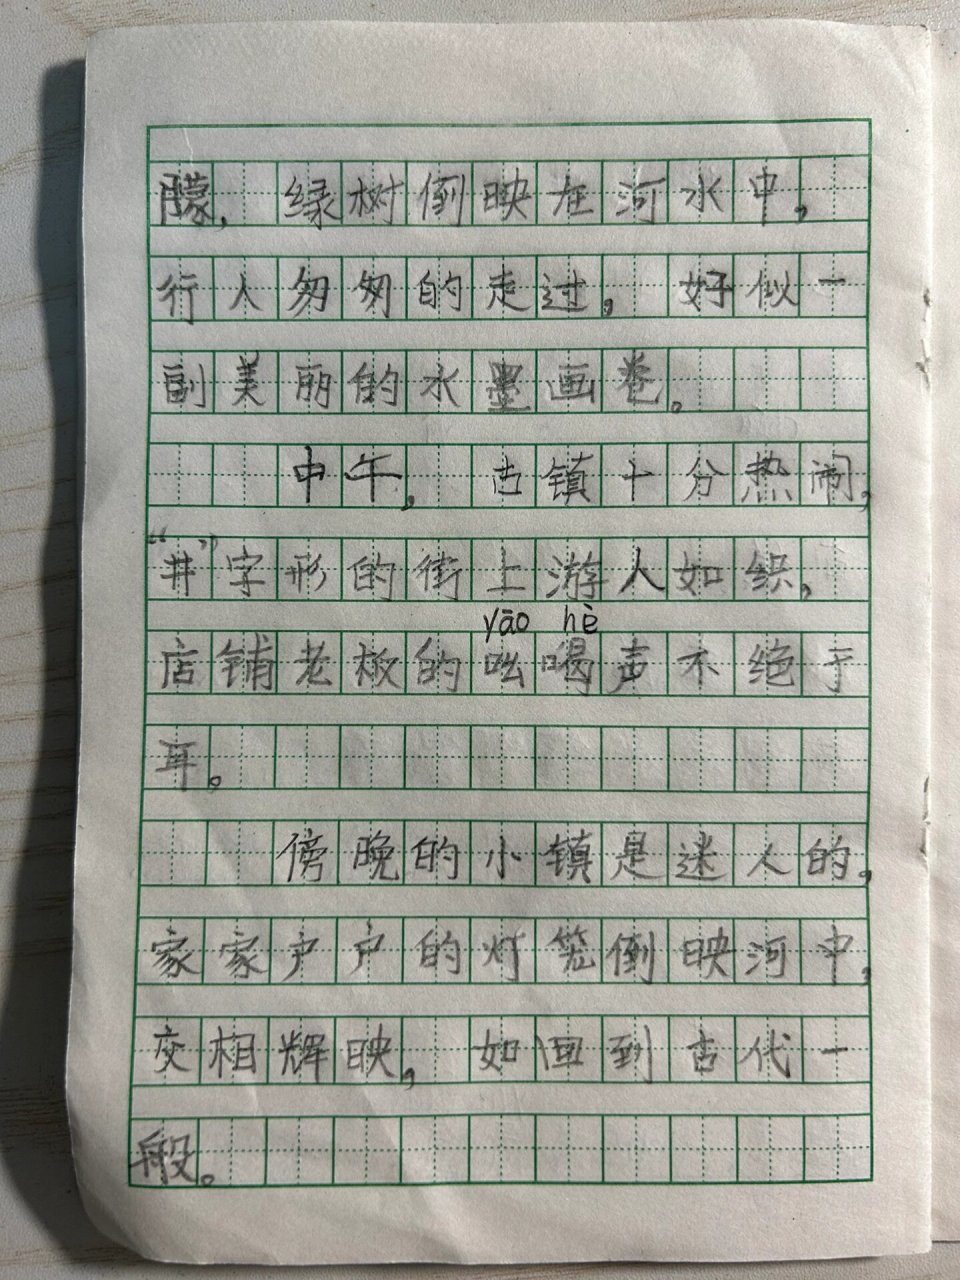 朦，缘树倒映在河水中，
行人匆匆的走过，好似一
副美丽的水墨画卷。
中午，古镇十分热闹，
“井”字形的街上游人如织，
yāo hè
店铺老板的吆喝声不绝于
耳。
傍晚的小镇是迷人的，
家家户户的灯笼倒映河中，
交相辉映，如回到古代一
般。